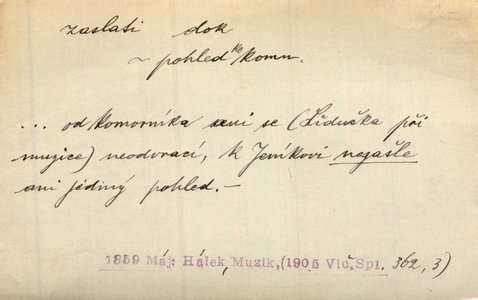 zaslati dok
~ pohled ke komu.
... od komorníka není se (Liduška při
muzice) neodvrací, k Jeníkovi nezašle
ani jediný pohled. –
1859 Máj: Hálek, Muzik, (1905 Vlč, Spi. 362, 3)